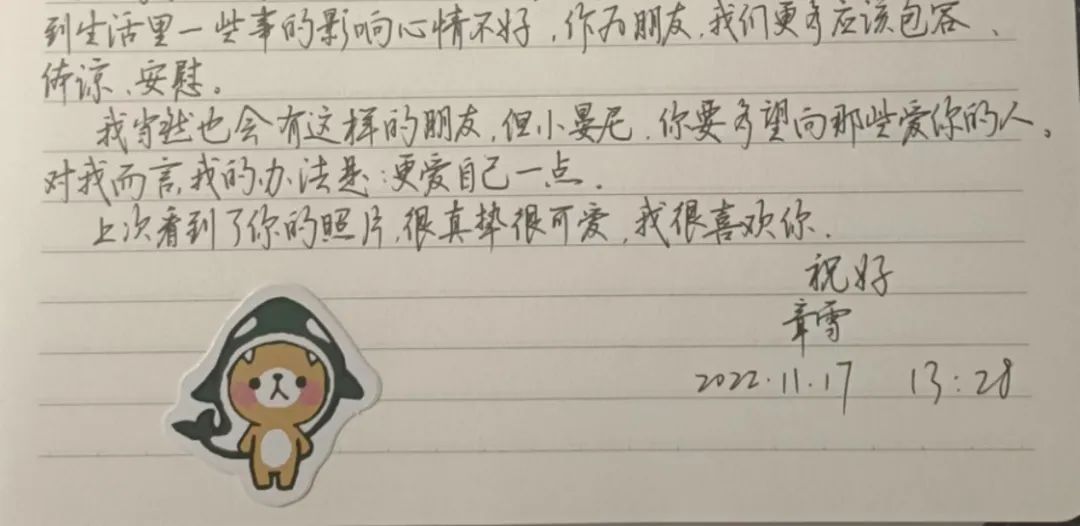 到生活里一些事的影响心情不好，作为朋友，我们更多应该包容、
体谅、安慰。
我当然也会有这样的朋友，但小晏尼，你要多望向那些爱你的人。
对我而言，我的办法是：更爱自己一点．
上次看到了你的照片，很真挚很可爱，我很喜欢你．
祝好
章雪
2022.11.17 13:28